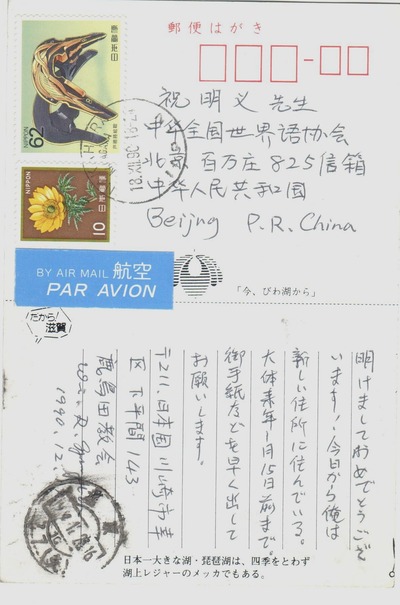 郵便はがき
日本郵便
62
NIPPON
18.XII.90
日本郵便
10
NIPPON
祝明义先生
中华全国世界语协会
北京百万庄825信箱
中华人民共和国
Beijng P.R. China
BY AIR MAIL 航空
PAR AVION
「今、びわ湖から」
だから
滋賀
明けましておめでとうござ
います!今日から俺は
新しい住所に住んでいる。
大体来年1月15日前まで。
御手紙などを早く出して
お願いします。
〒211,日本国川崎市幸
区下平間143
鹿島田教会
1990.12.
日本一大きな湖・琵琶湖は、四季をとわず
湖上レジャーのメッカでもある。